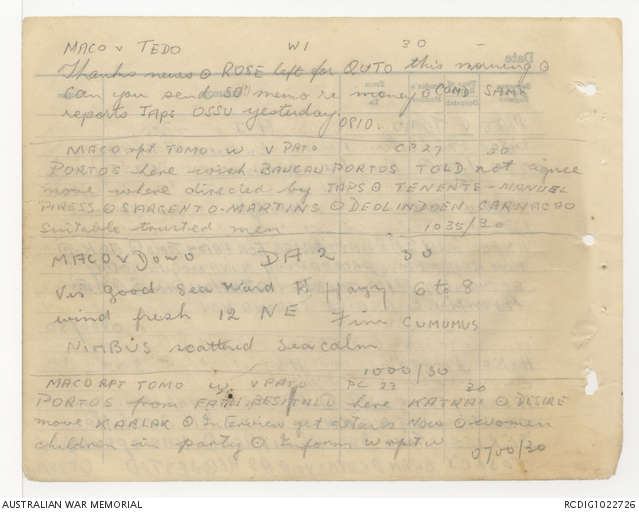 MACO V TEDO W1 30 -
Thanks news ⊙ ROSE left for QUTO this morning ⊙
Can you send 50 memo re money ⊙ COMD SAME
reports JAPS OSSU yesterday. 0810.
MACO rpt TOMO W V PATO CP27 30
PORTOS here wish BAUCAU PORTOS TOLD not agree
move where directed by JAPS ⊙ TENENTE - MANUEL
PIRESS ⊙ SARGENTO - MARTINS ⊙ DEOLINDOEN CARNACAO
suitable trusted men 1035/30
MACO V DOWO DA 2 30
Vis good Sea Ward Hazy 6 to 8
wind fresh 12 NE Fine CUMUMUS
NIMBUS scattered Sea calm
1000/30
MACO RPT TOMO W V PATO PC 23 30
PORTOS from BESITALU here KATRAI ⊙ DESIRE
move KABLAK ⊙ Interview get details Now ⊙ women
children in party ⊙ Inform W rpt W
0700/30
AUSTRALIAN WAR MEMORIAL
RCDIG1022726